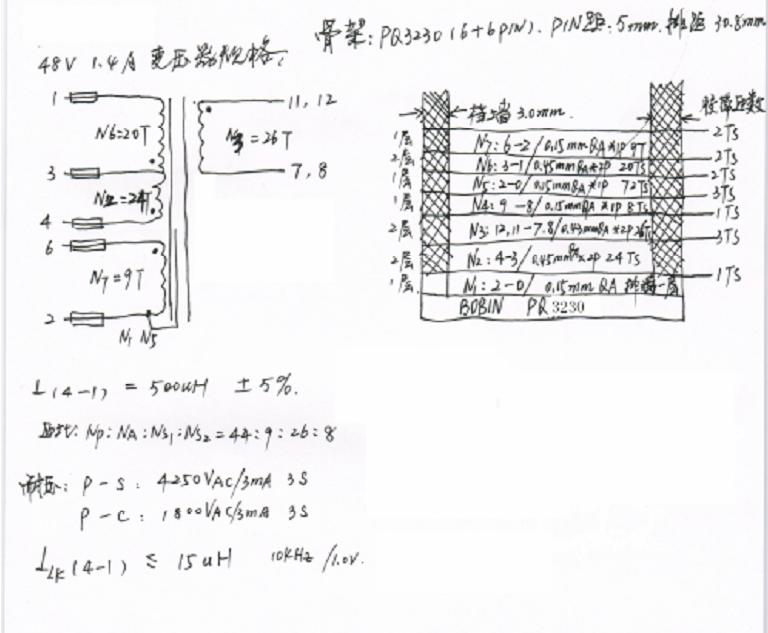 骨架: PQ3230 (6+6PIN). PIN距: 5mm. 排距 30.8mm
48V 1.4A 变压器规格:
1
N6=20T
3
N2=24T
4
6
N7=9T
2
N1 N5
11, 12
N3=26T
7, 8
挡墙 3.0mm.
胶带圈数
1层 N7: 6-2/0.15mm QA*1P 9T 2TS
2层 N6: 3-1/0.45mm QA*2P 20TS 2TS
1层 N5: 2-0/0.15mm QA*1P 2TS
1层 N4: 9-8/0.15mm QA*1P 8TS 3TS
1TS
2层 N3: 12,11-7.8/0.45mm QA*2P 26TS 3TS
2层 N2: 4-3/0.45mm QA*2P 24TS
1层 N1: 2-0/ 0.15mm QA 排满一层 1TS
BOBIN PQ 3230
L(4-1) = 500uH ±5%.
匝比: Np:NA:NS1:NS2=44:9:26:8
耐压: P-S: 4250VAC/3mA 3S
P-C: 1800VAC/3mA 3S
LLK(4-1) ≤ 15uH 10kHz/1.0V.